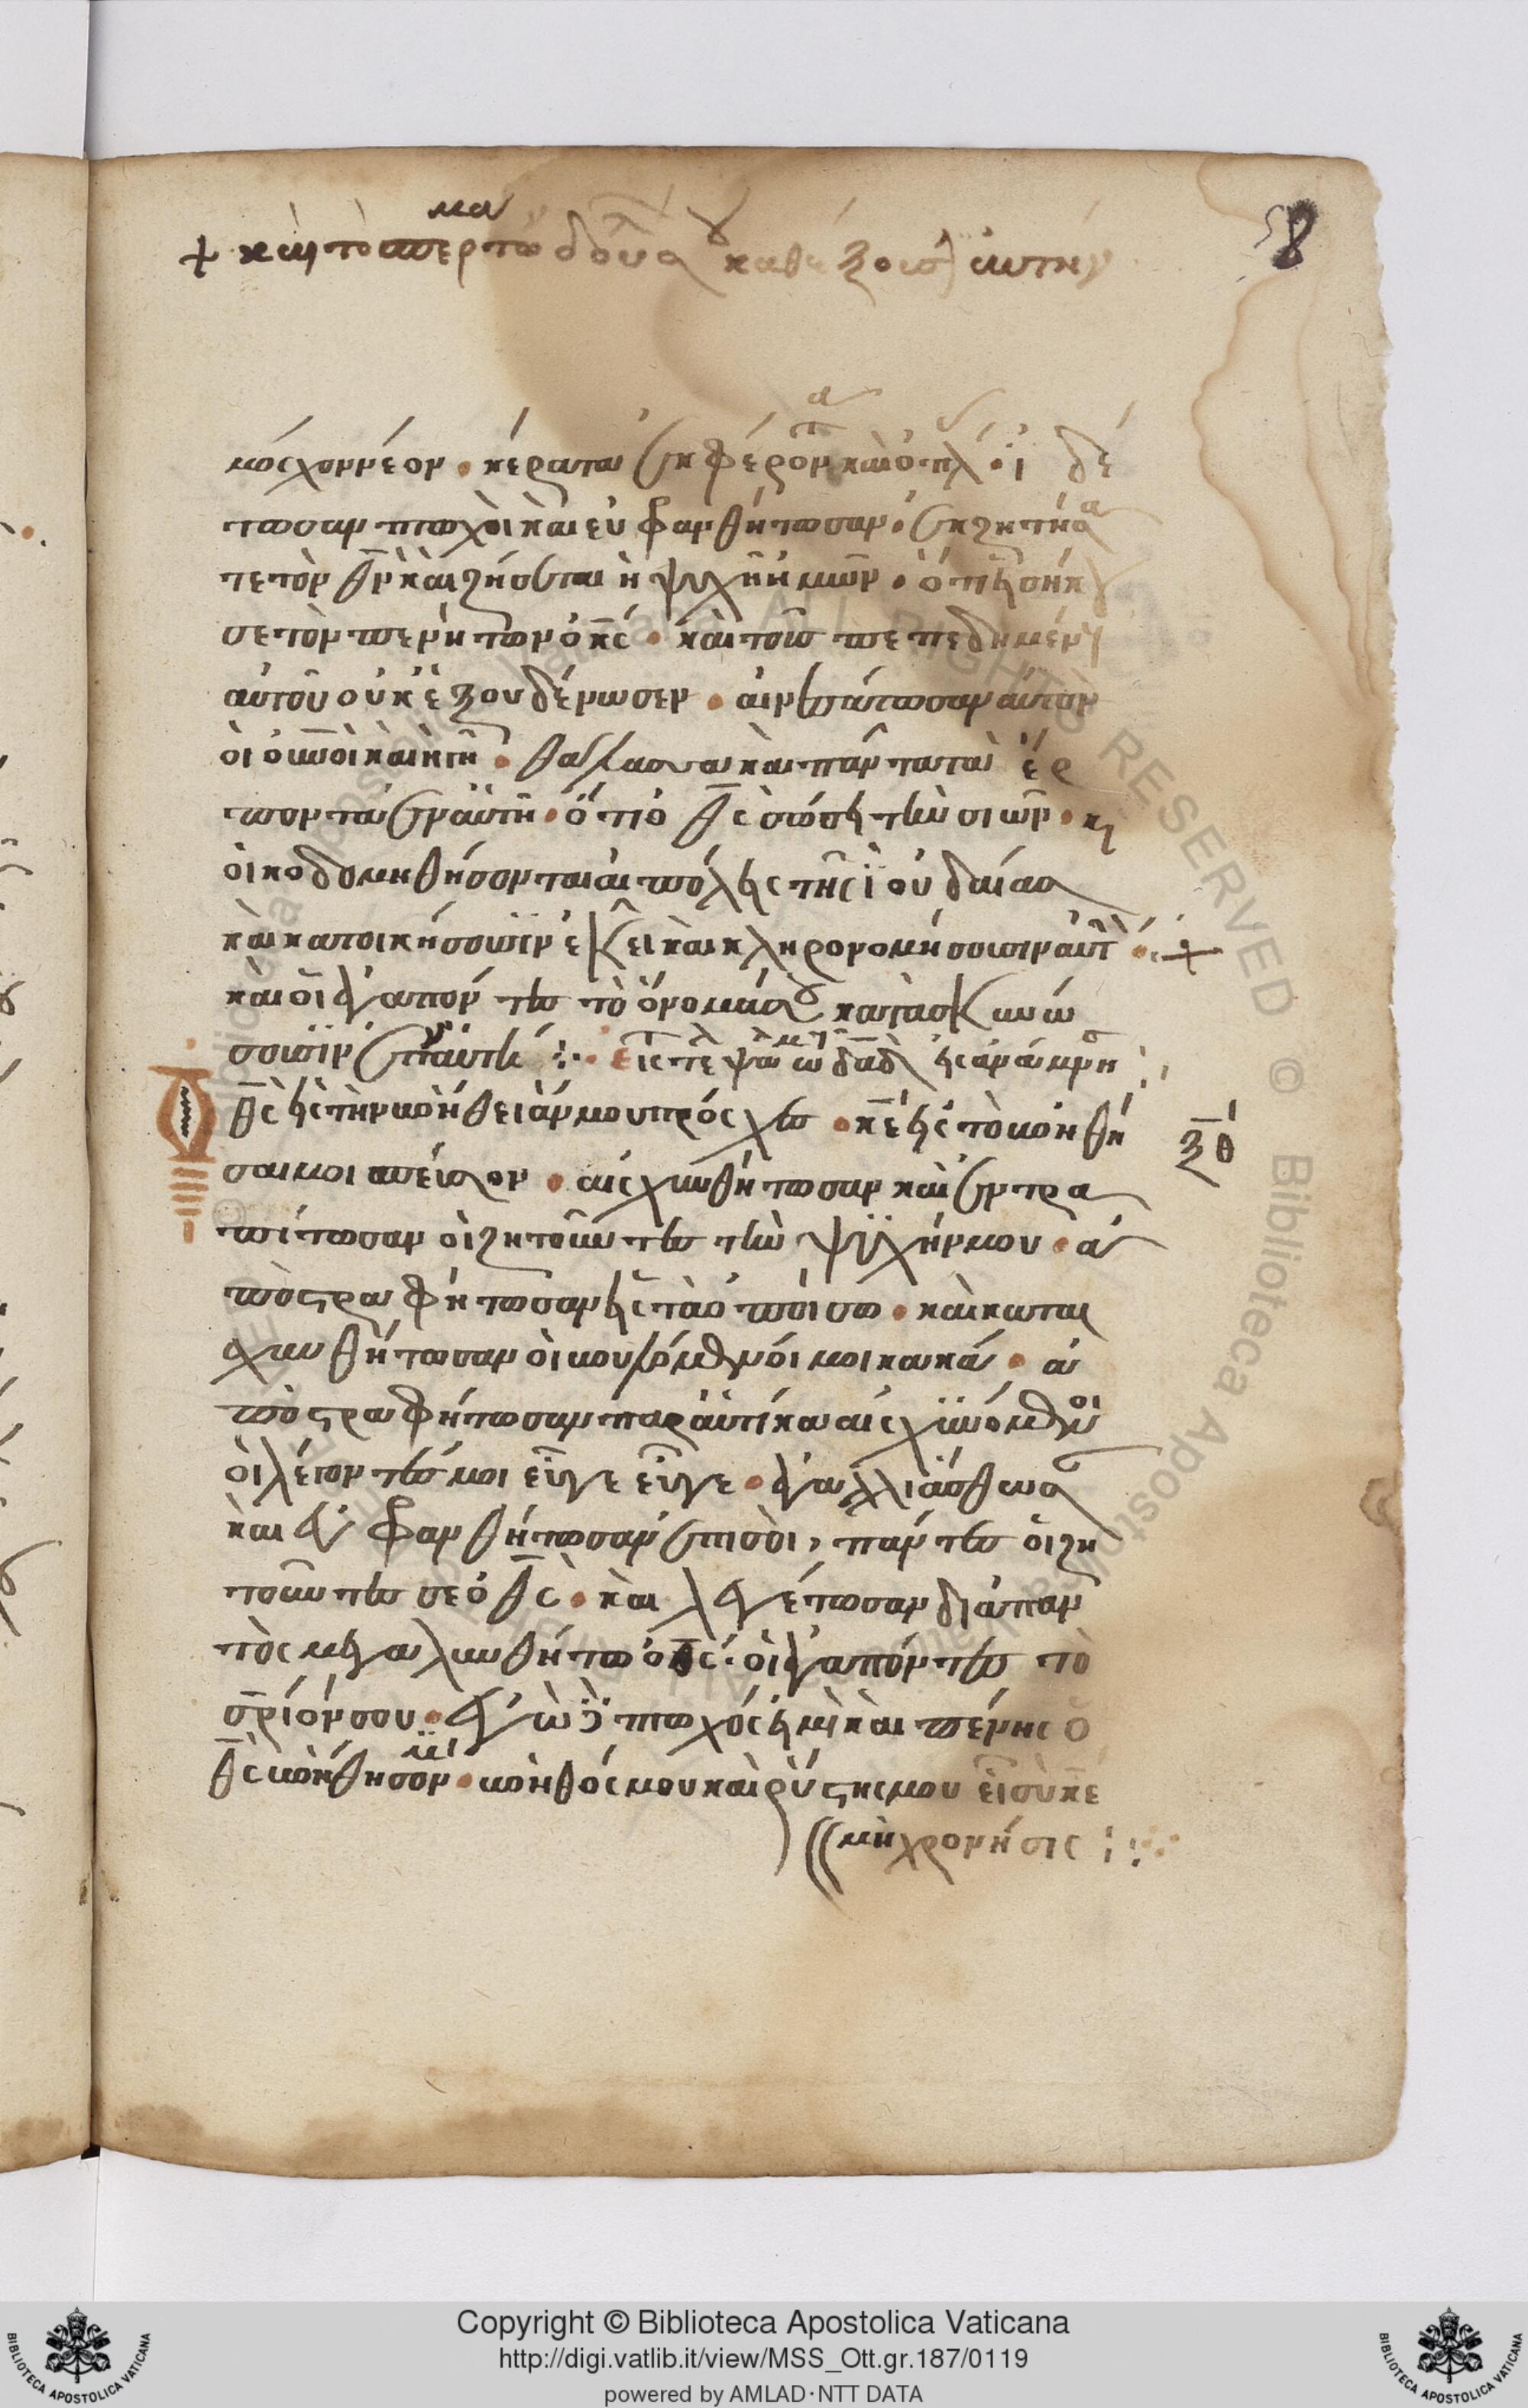 μα
+ καὶ τὸ σπερ τῶ δούλ αυ καθέξουσ αυτην
8
μόσχον νέον · κέρατα ἐκφέροντα καὶ ὁπλ · ἰδέ
τωσαν πτωχοὶ καὶ εὐφρανθήτωσαν · ἐκζητήσα
τε τὸν θν καὶ ζήσεται ἡ ψυχὴ ἡμῶν · ὅτι εἰσήκ
σε τῶν πενήτων ὁ κς · καὶ τοὺς πεπεδημέν
αὐτοῦ οὐκ ἐξουδένωσεν · αἰνεσάτωσαν αὐτὸν
οἱ οὐνοὶ καὶ ἡ γῆ · θάλασσα καὶ πάντα τὰ ἕρ
ποντα ἐν αὐτῆ · ὅτι ὁ θς σώσει τὴν σιών · κ
οἰκοδομηθήσονται αἱ πόλεις τῆς ἰουδαίας
καὶ κατοικήσουσιν ἐκεῖ καὶ κληρονομήσουσιν αὐτ · +
καὶ οἱ ἀγαπόντες τὸ ὄνομα αυ κατασκηνώ
σουσιν ἐν αὐτῆ :· εἰς τε ψα ω δαδ εἰς ἀνάμνη
Ὁ θς εἰς τὴν βοήθειάν μου πρόσχες · κε εἰς τὸ βοηθῆ
ξθ
σαι μοι σπεῦσον · αἰσχυνθήτωσαν καὶ ἐντρα
πίτωσαν οἱ ζητοῦντες τὴν ψυχήν μου · ἀ
ποστραφήτωσαν εἰς τὰ ὀπίσω · καὶ καται
σχυνθήτωσαν οἱ βουλόμενοί μοι κακά · ἀ
ποστραφήτωσαν παραυτίκα αἰσχυνόμενοι
οἱ λέγοντές μοι εὖγε εὖγε · ἀγαλλιάσθωσα
καὶ εὐφρανθήτωσαν ἐπὶ σοὶ, πάντες οἱ ζη
τοῦντες σε ὁ θς · καὶ λεγέτωσαν διὰ παν
τὸς μεγαλυνθήτω ὁ κς · οἱ ἀγαπόντες τὸ
σριόν σου · ἐγὼ δὲ πτωχός εἰμὶ καὶ πένης ὁ
θς βοήθησόν μοι · βοηθός μου καὶ ῥύστης μου εἶ σὺ κε
μὴ χρονήσις :
Copyright © Biblioteca Apostolica Vaticana
http://digi.vatlib.it/view/MSS_Ott.gr.187/0119
powered by AMLAD·NTT DATA